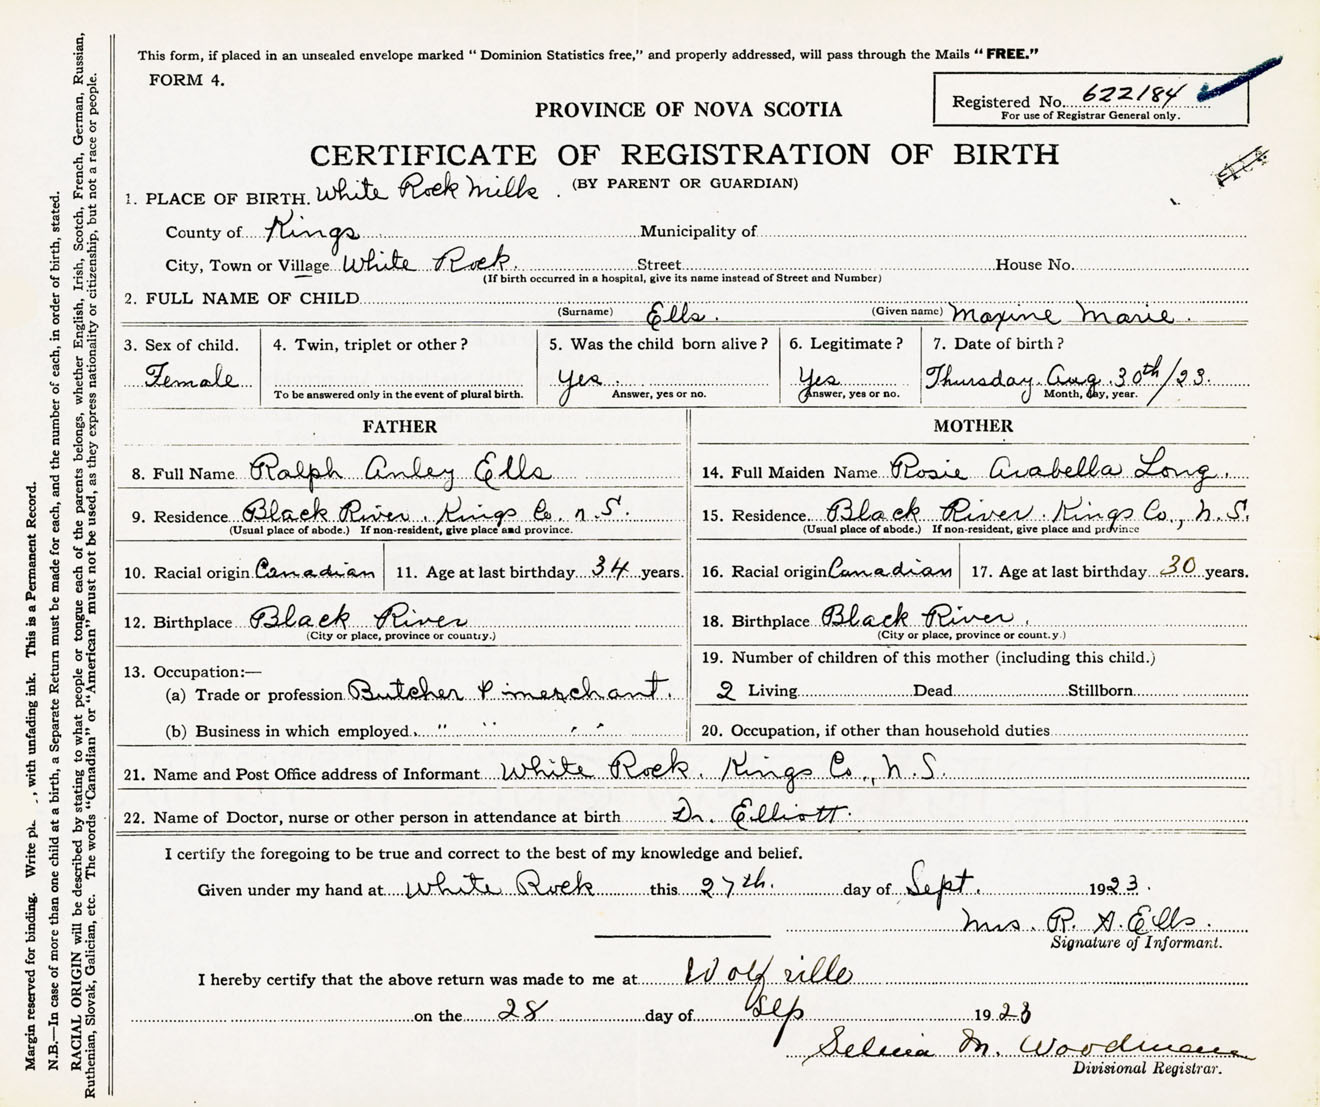 This form, if placed in an unsealed envelope marked "Dominion Statistics free," and properly addressed, will pass through the Mails "FREE."
FORM 4.
Registered No. 622184
For use of Registrar General only.
PROVINCE OF NOVA SCOTIA
CERTIFICATE OF REGISTRATION OF BIRTH
(BY PARENT OR GUARDIAN)
1. PLACE OF BIRTH. White Rock Mills.
County of Kings Municipality of
City, Town or Village White Rock. Street House No.
(If birth occurred in a hospital, give its name instead of Street and Number)
2. FULL NAME OF CHILD
(Surname) Ells. (Given name) Maxine Marie.
3. Sex of child. 4. Twin, triplet or other? 5. Was the child born alive? 6. Legitimate? 7. Date of birth?
Female Yes. Yes Thursday. Aug. 30th/23.
To be answered only in the event of plural birth. Answer, yes or no. Answer, yes or no. Month, day, year.
FATHER MOTHER
8. Full Name Ralph Anley Ells 14. Full Maiden Name Rosie Arabella Long.
9. Residence Black River. Kings Co. N.S. 15. Residence Black River. Kings Co., N.S.
(Usual place of abode.) If non-resident, give place and province. (Usual place of abode.) If non-resident, give place and province
10. Racial origin Canadian 11. Age at last birthday 34 years. 16. Racial origin Canadian 17. Age at last birthday 30 years.
12. Birthplace Black River 18. Birthplace Black River.
(City or place, province or country.) (City or place, province or country.)
13. Occupation:— 19. Number of children of this mother (including this child.)
(a) Trade or profession Butcher & merchant. 2 Living Dead Stillborn
(b) Business in which employed " " " " 20. Occupation, if other than household duties
21. Name and Post Office address of Informant White Rock. Kings Co., N.S.
22. Name of Doctor, nurse or other person in attendance at birth Dr. Elliott.
I certify the foregoing to be true and correct to the best of my knowledge and belief.
Given under my hand at White Rock this 27th. day of Sept. 1923.
Mrs. R. A. Ells.
Signature of Informant.
I hereby certify that the above return was made to me at Wolfville
on the 28 day of Sep 1923
M. Woodman
Divisional Registrar.
Margin reserved for binding. Write , with unfading ink. This is a Permanent Record.
N.B.—In case of more than one child at a birth, a Separate Return must be made for each, and the number of each, in order of birth, stated.
RACIAL ORIGIN will be described by stating to what people or tongue each of the parents belongs, whether English, Irish, Scotch, French, German, Russian,
Ruthenian, Slovak, Galician, etc. The words "Canadian" or "American" must not be used, as they express nationality or citizenship, but not a race or people.